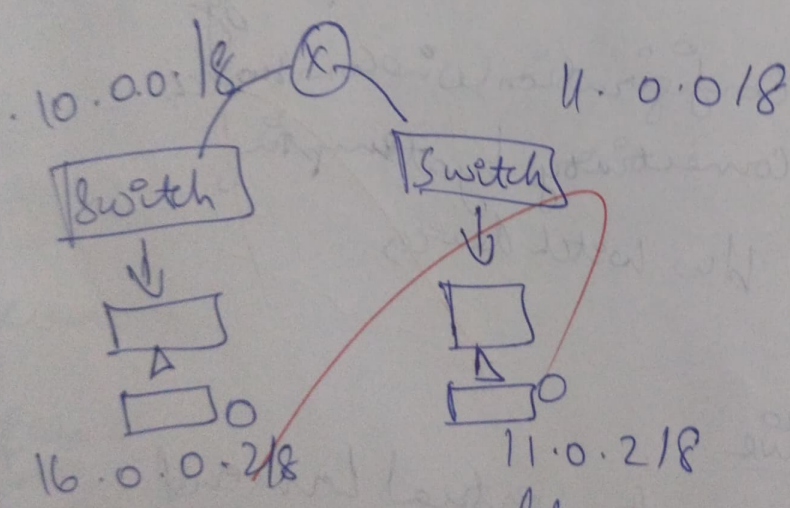 .10.0.0./8
X
11.0.0/8
Switch
Switch
16.0.0.2/8
11.0.2/8